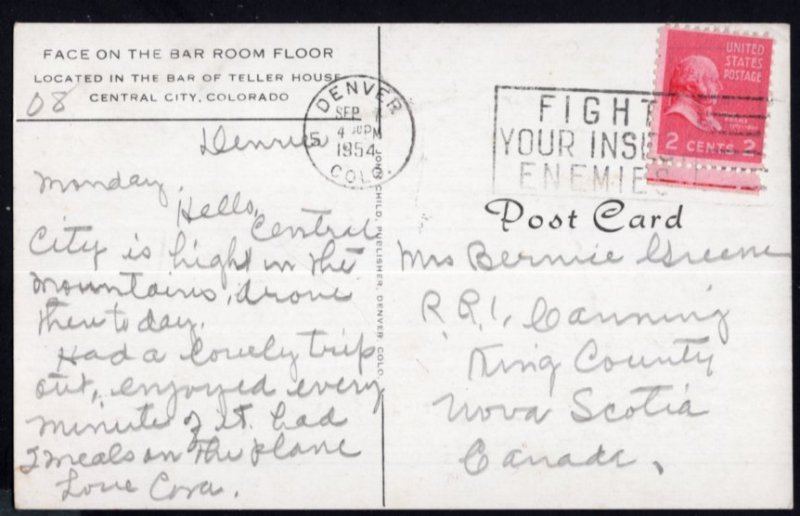 FACE ON THE BAR ROOM FLOOR
LOCATED IN THE BAR OF TELLER HOUSE
CENTRAL CITY, COLORADO
08
Denver
Monday,
Hello, Central
City is high in the
mountains, drove
there today.
Had a lovely trip
out, enjoyed every
minute of it. had
2 meals on the plane
Love Cora.
JOHN CHILD, PUBLISHER, DENVER COLO.
DENVER
SEP
4 PM
1954
COLO.
FIGHT
YOUR INSE
ENEMIES
UNITED
STATES
POSTAGE
2 CENTS 2
Post Card
Mrs Bernie Greene
R.R.1, Canning
King County
Nova Scotia
Canada,